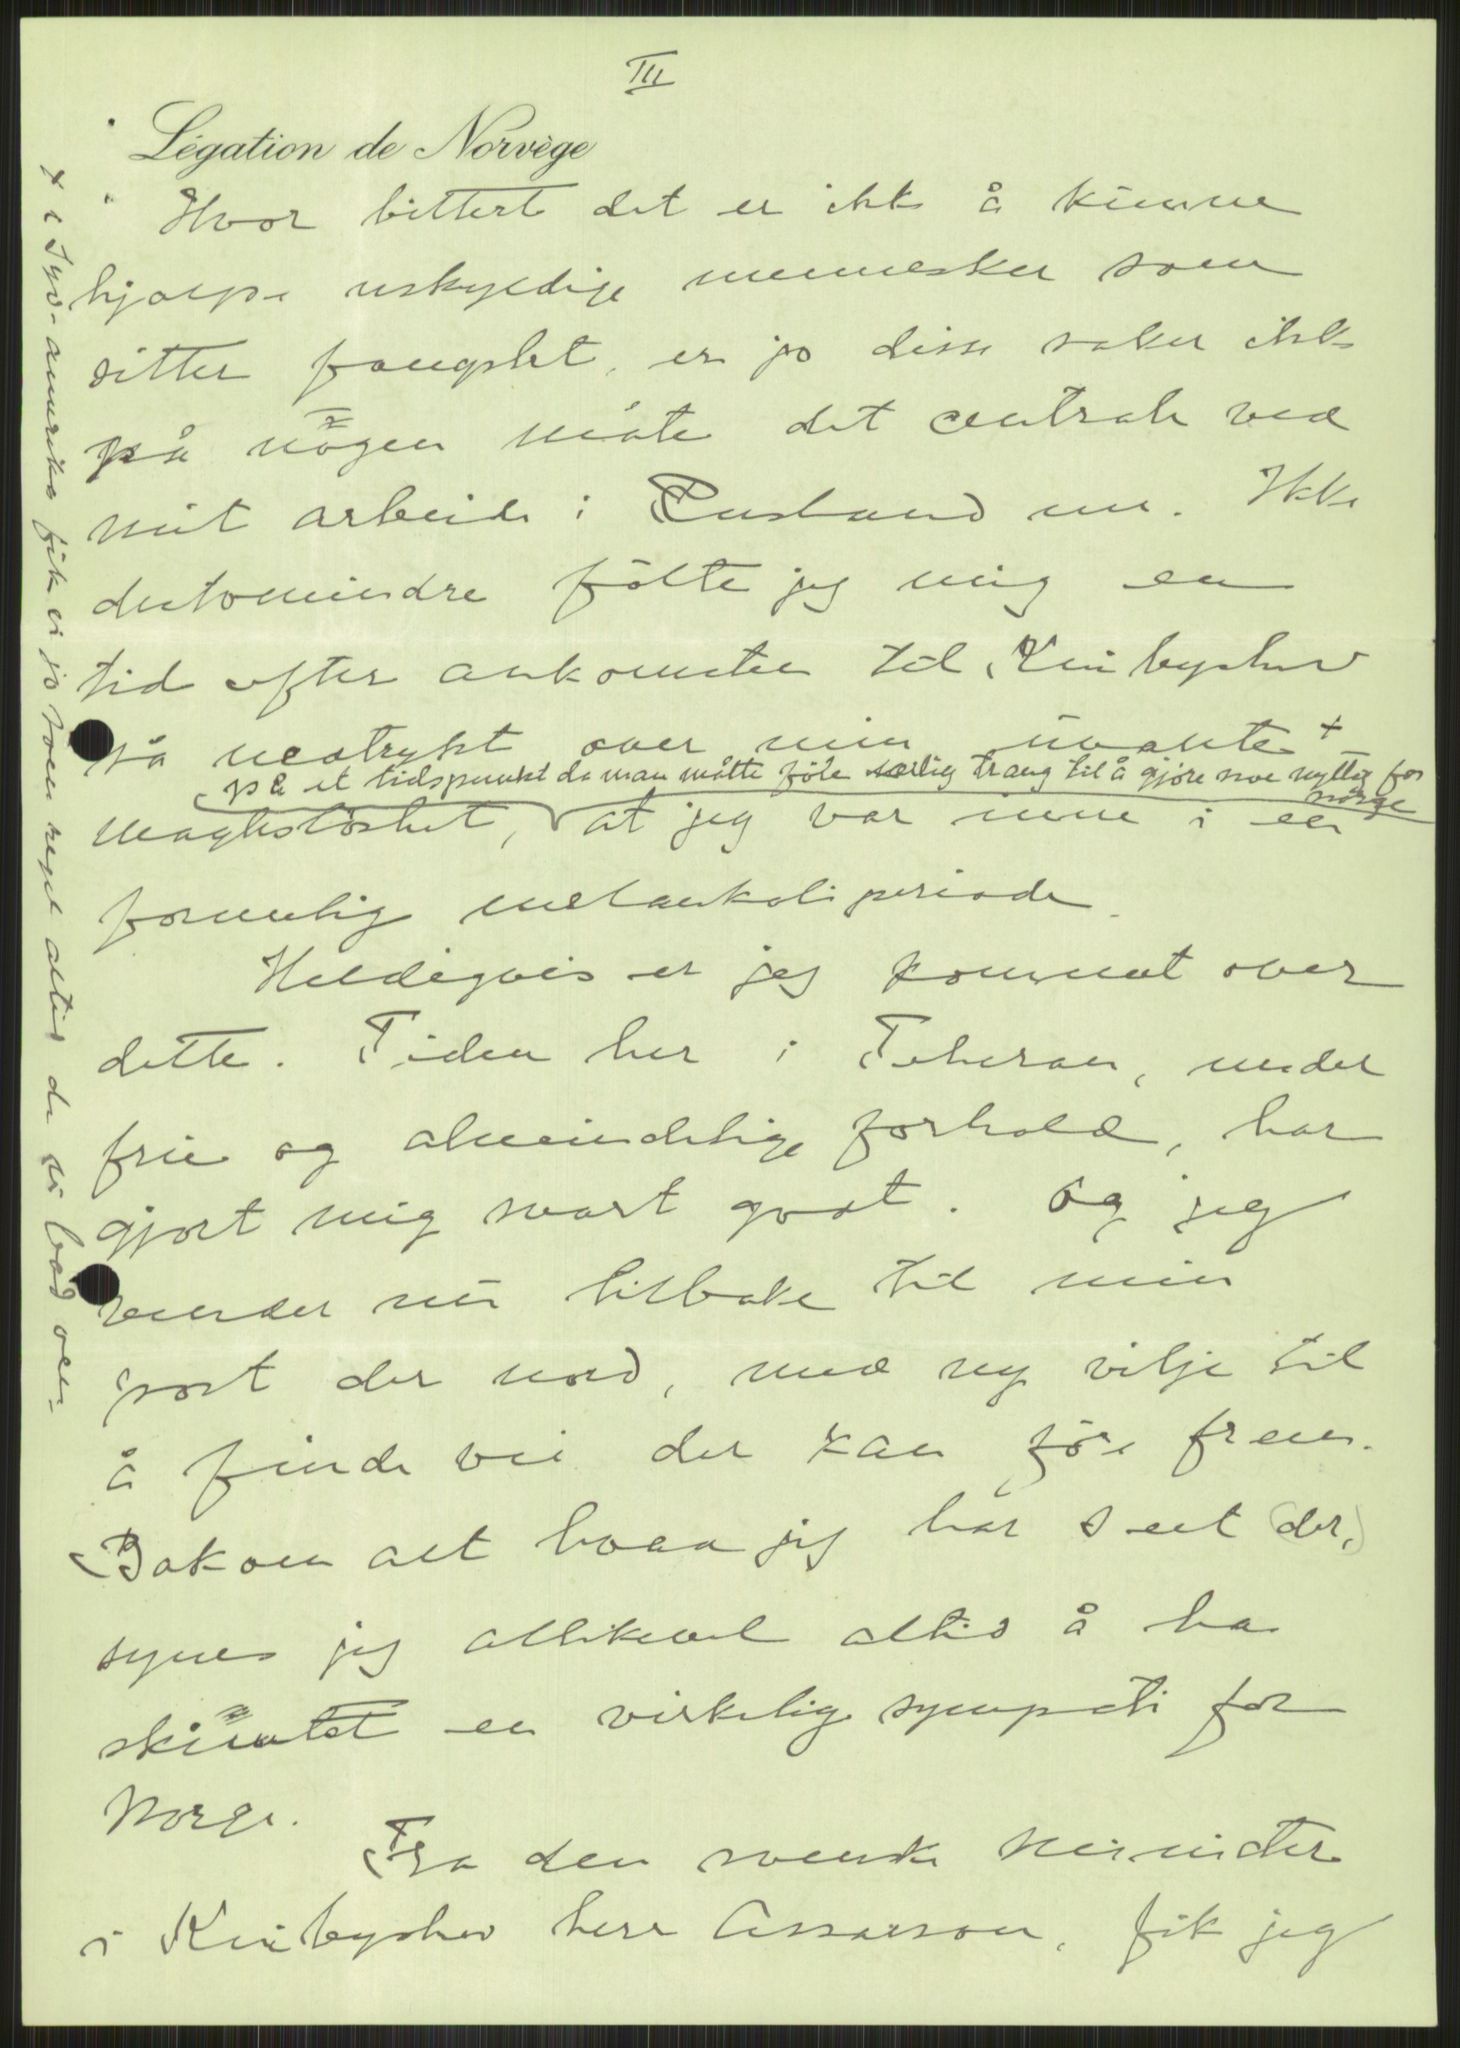 III
Légation de Norvège
Hvor bittert det er ikke å kunne
hjælpe uskyldige mennesker som
sitter fængslet, er jo disse saker ikke
på nogen måte det centrale ved
mit arbeide i Rusland nu. Ikke
destomindre følte jeg mig en
tid efter ankomsten til Kuibyshev
så nedtrykt over min uvante +
på et tidspunkt da man måtte føle særlig trang til å gjøre noe nyttig for
Norge
magtesløshet, at jeg var inne i en
formelig melankoliperiode.
Heldigvis er jeg kommet over
dette. Tiden her i Teheran, under
frie og almindelige forhold, har
gjort mig svært godt. Og jeg
vender nu tilbake til min
post der nord, med ny vilje til
å finde vei der kan føre frem.
Bakom alt hvad jeg har sett (der,)
synes jeg allikevel altid å ha
skimtet en virkelig sympati for
Norge.
Fra den svenske minister
i Kuibyshev herr Assarson, fik jeg
+ i Syd-amerika fik vi jo som regel altid det vi bad om.